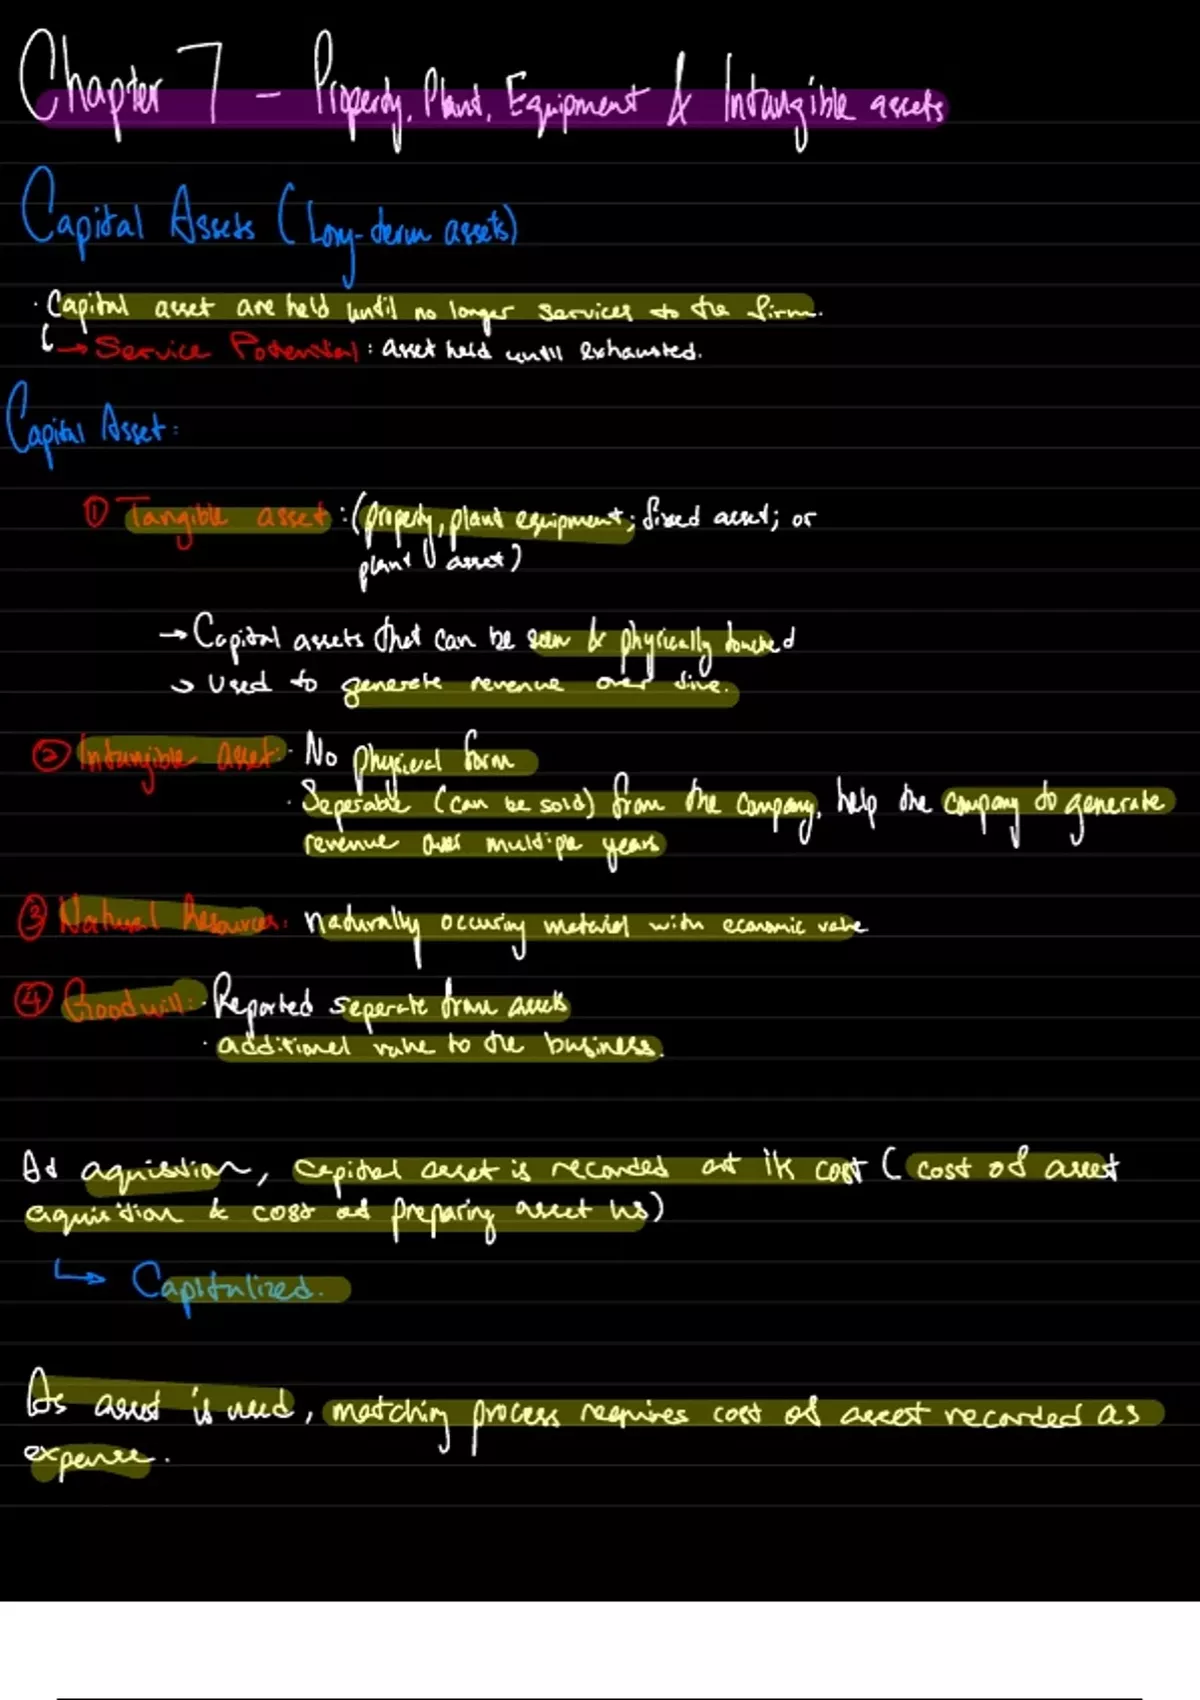 Chapter 7 – Property, Plant, Equipment & Intangible assets
Capital Assets (Long-term assets)
· Capital asset are held until no longer services to the firm.
↳→ Service Potential: asset held until exhausted.
Capital Asset:
① Tangible asset: (property, plant equipment; fixed asset; or
plant asset)
→ Capital assets that can be seen & physically touched
→ Used to generate revenue over time.
② Intangible asset: · No physical form
· Seperable (can be sold) from the company, help the company to generate
revenue over multiple years
③ Natural Resources: naturally occuring material with economic value
④ Goodwill: · Reported seperate from assets
· additional value to the business.
At aquisition, capital asset is recorded at its cost (cost of asset
aquisition & cost of preparing asset)
↳ Capitalized.
As asset is used, matching process requires cost of asset recorded as
expense.